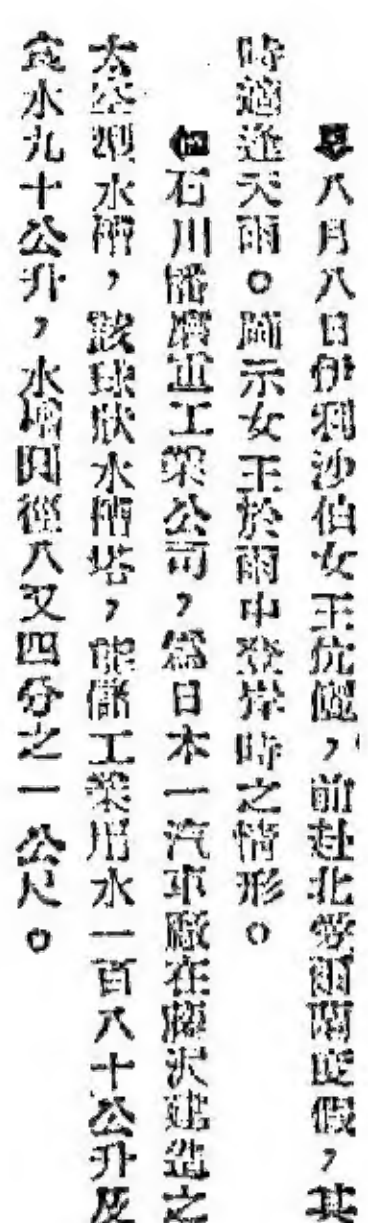 八月八日伊利沙伯女王伉儷，前赴北愛爾蘭度假，其
時適逢天雨。圖示女王於雨中登岸時之情形。
石川播磨重工業公司，為日本一汽車廠在藤沢建造之
太空型水槽，該球狀水槽塔，能儲工業用水一百八十公升及
食水九十公升，水塔圓徑八又四分之一公尺。